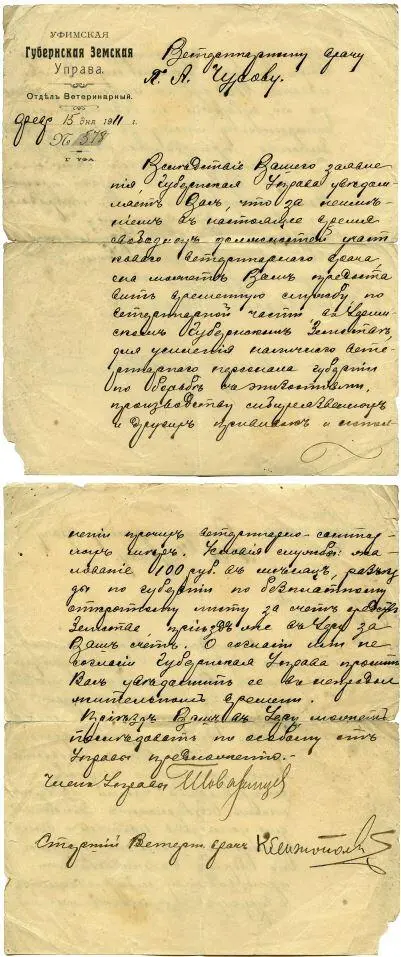 УФИМСКАЯ
Губернская Земская
Управа.
Отдѣлъ Ветеринарный.
15 дня 1911 г.
№ 1578
Г. УФА
Ветеринарному врачу
П. А. Чурсову.
Вслѣдствіе Вашего заявле
нія, Губернская Управа увѣдом
ляетъ Васъ, что за неимѣ
ніемъ въ настоящее время
свободной должности участ
коваго ветеринарнаго врача
она можетъ Вамъ предоста
вить временную службу по
ветеринарной части въ Уфим
скомъ Губернскомъ Земствѣ,
для усиленія наличнаго вете
ринарнаго персонала губерніи
по борьбѣ съ эпизоотіями,
производству сибиреязвенныхъ
и другихъ прививокъ и испол
ненія прочихъ ветеринарно-санитар
ныхъ мѣръ. Условія службы: жа
лованіе 100 руб. въ мѣсяцъ, разъѣз
ды по губерніи по безплатному
открытому листу за счетъ
Земства, пріѣздъ же въ Уфу за
Вашъ счетъ. О согласіи или не
согласіи Губернская Управа проситъ
Васъ увѣдомить ее въ непродол
жительномъ времени.
Пріѣздъ Вашъ въ Уфу можетъ
послѣдовать по особому отъ
Управы предложенію.
Членъ Управы
Старшій Ветерин. врачъ